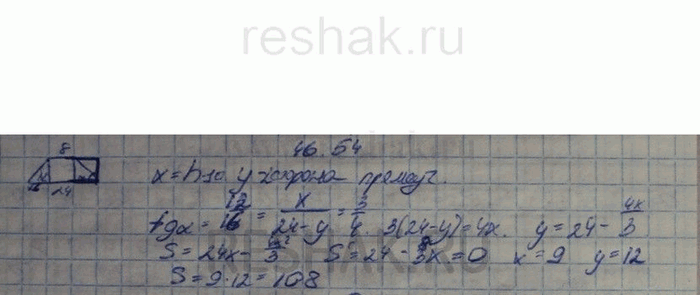 reshak.ru
46.54
8
24
x = h
y сторона прямоуг.
tgα = 12/16 = x/(24-y) = 3/4. 3(24-y)=4x. y=24- 4x/3
S = 24x - 4x²/3 S' = 24 - 8/3x = 0 x=9 y=12
S = 9·12 = 108